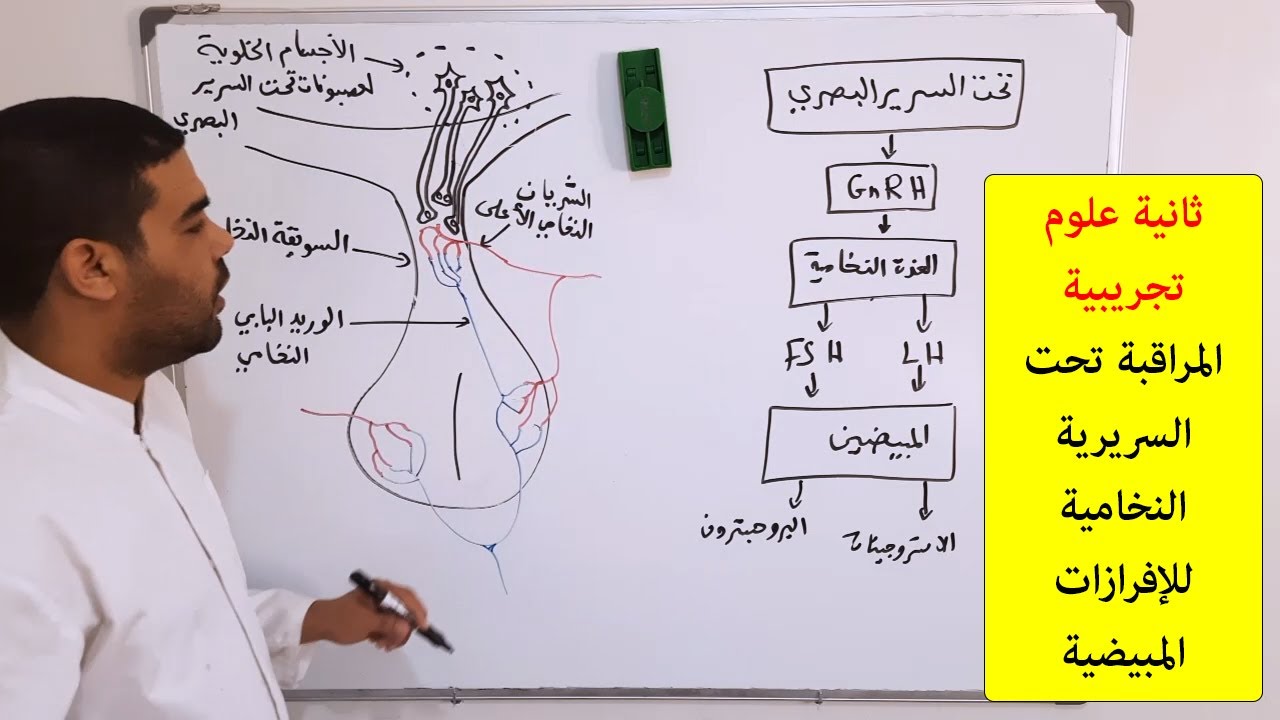 الأجسام الخلوية
لعصبونات تحت السرير
البصري
الشريان
النخامي الأعلى
السويقة النخا
الوريد البابي
النخامي
تحت السرير البصري
GnRH
الغدة النخامية
FSH
LH
المبيضين
البروجسترون
الاستروجينات
ثانية علوم
تجريبية
المراقبة تحت
السريرية
النخامية
للإفرازات
المبيضية